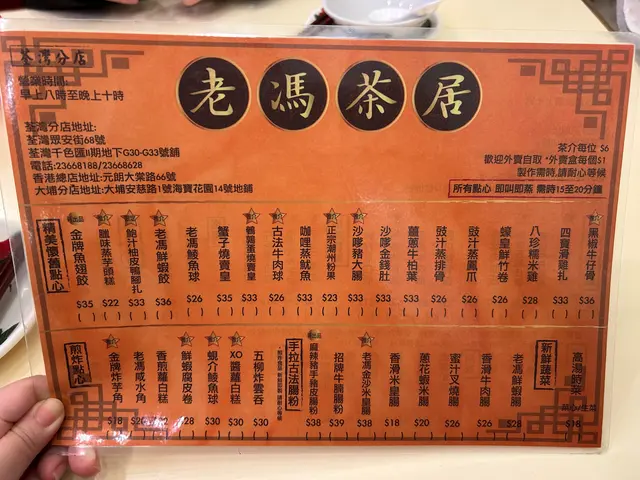 荃灣分店
營業時間:
早上八時至晚上十時
老馮茶居
荃灣分店地址:
荃灣眾安街68號
荃灣千色匯II期地下G30-G33號舖
電話:23668188/23668628
香港總店地址:元朗大棠路66號
大埔分店地址:大埔安慈路1號海寶花園14號地舖
茶介每位 $6
歡迎外賣自取 *外賣盒每個$1
製作需時,請耐心等候
所有點心 即叫即蒸 需時15至20分鐘
精美懷舊點心
金牌魚翅餃 $35
臘味蒸芋頭糕 $22
鮑汁柚皮鴨腳扎 $33
老馮鮮蝦餃 $36
老馮鯪魚球 $26
蟹子燒賣皇 $35
鵪鶉蛋燒賣皇 $33
古法牛肉球 $26
咖喱蒸魷魚 $33
正宗潮州粉果 $23
沙嗲豬大腸 $33
沙嗲金錢肚 $33
薑蔥牛柏葉 $33
豉汁蒸排骨 $26
豉汁蒸鳳爪 $26
蠔皇鮮竹卷 $26
八珍糯米雞 $28
四寶滑雞扎 $33
黑椒牛仔骨 $36
煎炸點心
金牌炸芋角 $18
老馮咸水角 $20
香煎蘿白糕
鮮蝦腐皮卷 $28
蜆介鯪魚球 $30
XO醬蘿白糕 $30
五柳炸雲吞 $30
手拉古法腸粉
麻辣豬手豬皮腸粉 $38
招牌牛腩腸粉 $39
老馮金沙米皇腸 $38
香滑米皇腸 $18
蔥花蝦米腸 $20
蜜汁叉燒腸 $26
香滑牛肉腸 $26
老馮鮮蝦腸 $28
新鮮蔬菜
高湯時菜
菜心/生菜
$18